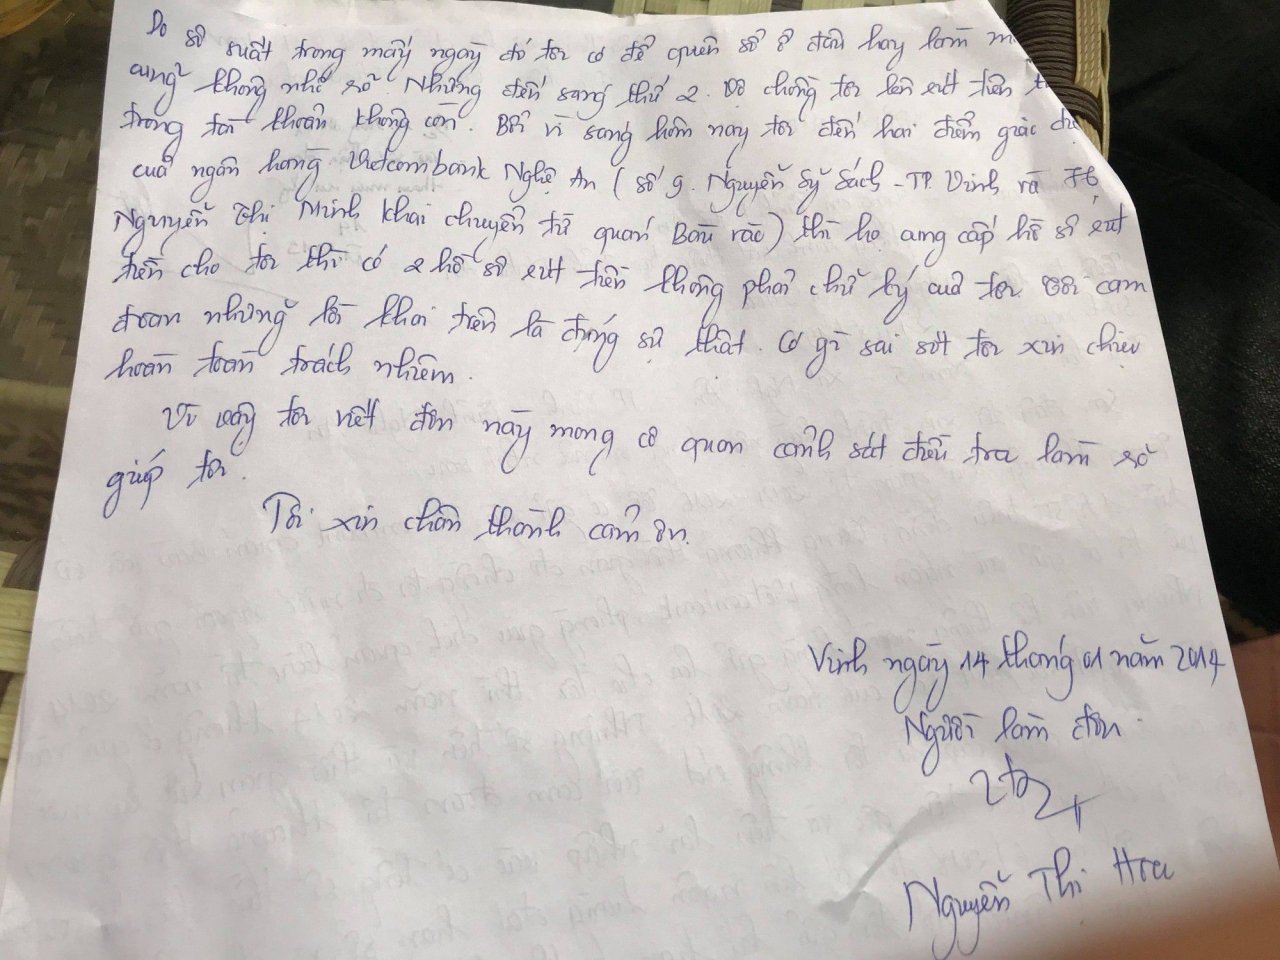 Do sơ suất trong mấy ngày đó tôi có để quên sổ ở đâu hay làm m
cũng không nhớ rõ. Nhưng đến sáng thứ 2. Vợ chồng tôi lên rút tiền t
trong tài khoản không còn. Bởi vì sáng hôm nay tôi đến hai điểm giao dị
của ngân hàng Vietcombank Nghệ An (số 9. Nguyễn Sỹ Sách - TP. Vinh và
Nguyễn Thị Minh Khai chuyển từ quán Bàu rào) thì họ cung cấp hồ sơ rút
tiền cho tôi thì có 2 hồ sơ rút tiền không phải chữ ký của tôi. Tôi cam
đoan những lời khai trên là đúng sự thật. Có gì sai sót tôi xin chịu
hoàn toàn trách nhiệm.
Vì vậy tôi viết đơn này mong cơ quan cảnh sát điều tra làm rõ
giúp tôi.
Tôi xin chân thành cảm ơn.
Vinh ngày 14 tháng 01 năm 2017
Người làm đơn
Nguyễn Thị Hoa